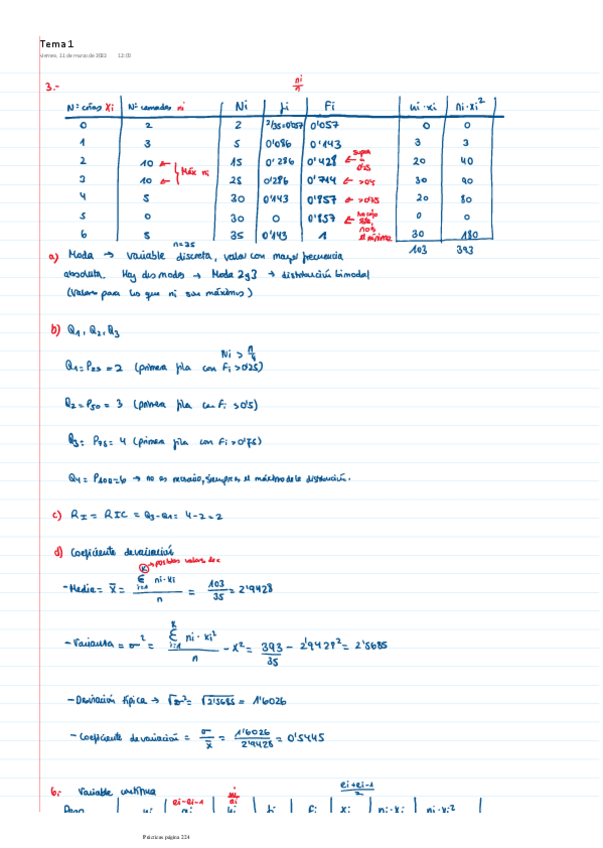 Tema 1
viernes, 11 de marzo de 2022 12:03
3.-
ni/n
Nº crías xi | Nº camadas ni | Ni | fi | Fi | ni·xi | ni·xi²
0 | 2 | 2 | 2/35=0'057 | 0'057 | 0 | 0
1 | 3 | 5 | 0'086 | 0'143 | 3 | 3
2 | 10 ← | 15 | 0'286 | 0'428 ← supera 0'25 | 20 | 40
Máx ni
3 | 10 ← | 25 | 0'286 | 0'714 ← >0'5 | 30 | 90
4 | 5 | 30 | 0'143 | 0'857 ← >0'75 | 20 | 80
5 | 0 | 30 | 0 | 0'857 ← | 0 | 0
6 | 5 | 35 | 0'143 | 1 | 30 | 180
n=35 103 393
a) Moda → variable discreta, valor con mayor frecuencia
absoluta. Hay dos modas → Moda 2 y 3 → distribución bimodal
(Valores para los que ni son máximos)
b) Q1, Q2, Q3
Ni > n/4
Q1=P25=2 (primera fila con Fi>0'25)
Q2=P50=3 (primera fila con Fi>0'5)
Q3=P75=4 (primera fila con Fi>0'75)
Q4=P100=6 → no es necesario, siempre es el máximo de la distribución.
c) RI=RIC=Q3-Q1=4-2=2
d) Coeficiente de variación
K → posibles valores de x
-Media= x̄= Σ i=1 ni·xi / n = 103/35=2'9428
-Varianza=σ²= K Σ i=1 ni·xi² / n - x̄²= 393/35 - 2'9429²=2'5685
-Desviación típica → √σ²=√2'5685=1'6026
-Coeficiente de variación= σ/x̄ = 1'6026/2'9428=0'5445
6. Variable continua
ei-ei-1
ei+ei-1/2
ni | Ni | fi | Fi | xi | ni·xi | ni·xi²
Prácticas página 224